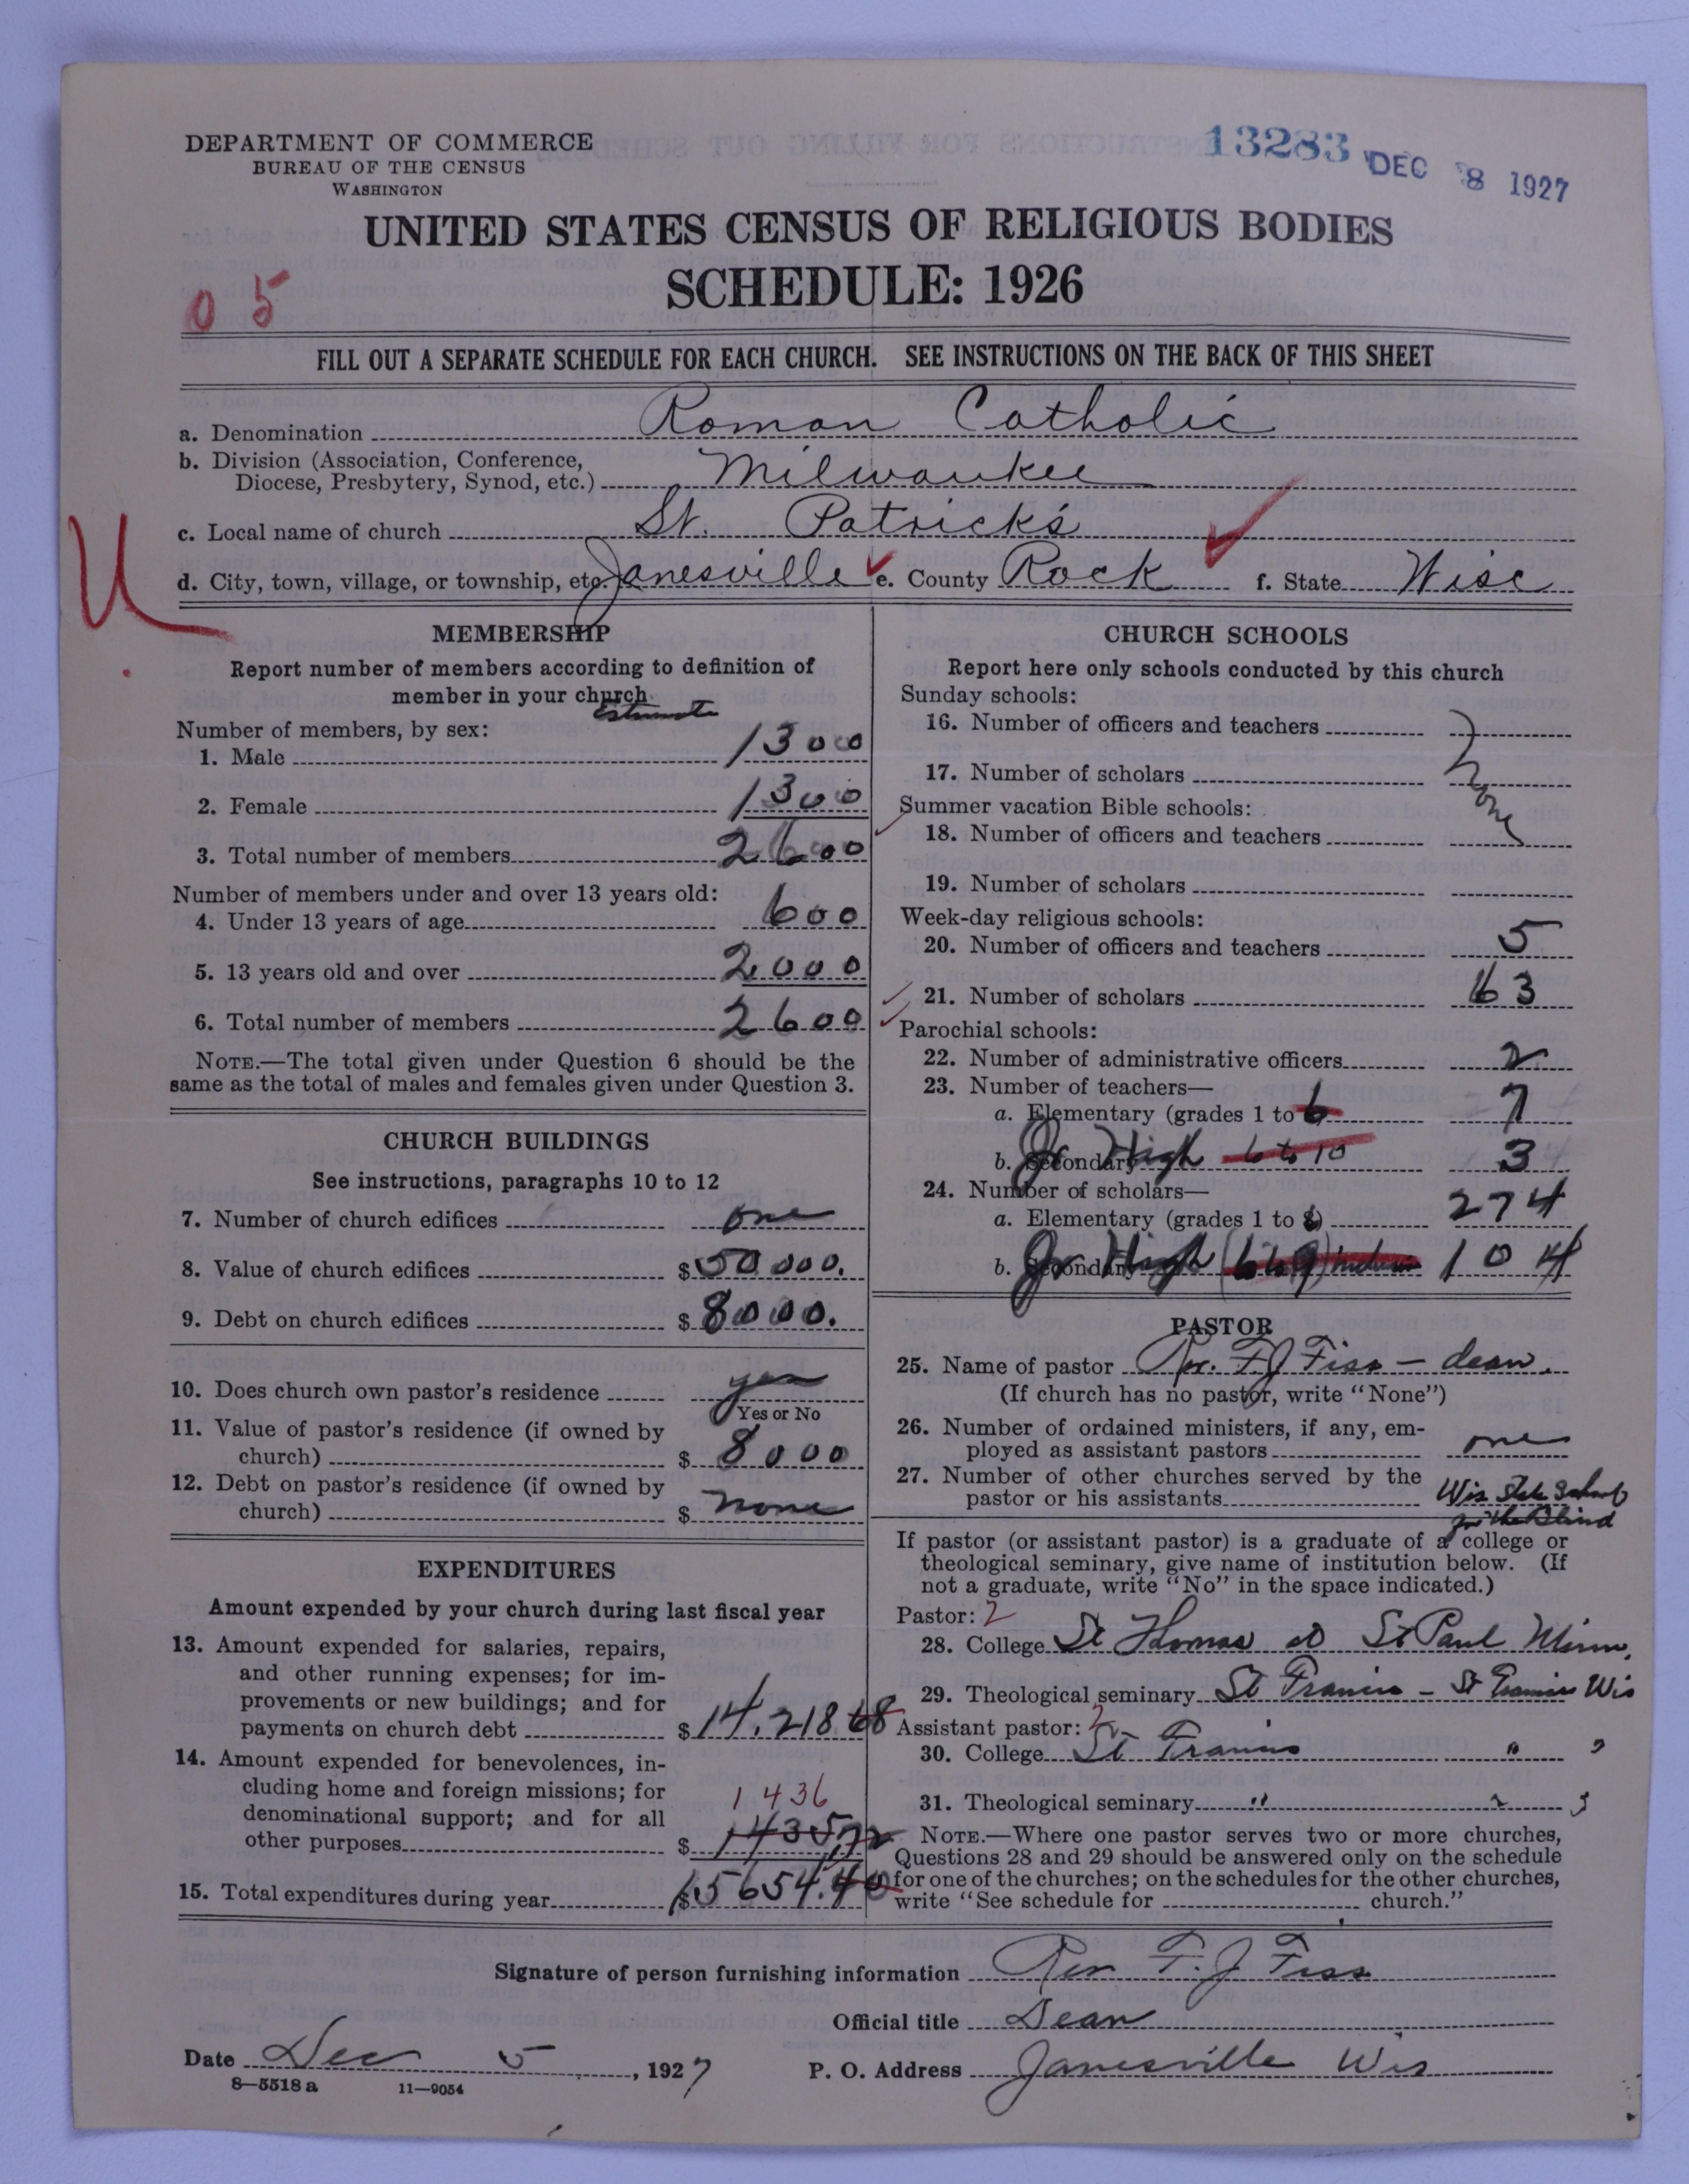 DEPARTMENT OF COMMERCE
BUREAU OF THE CENSUS
WASHINGTON
13283 DEC 8 1927
UNITED STATES CENSUS OF RELIGIOUS BODIES
SCHEDULE: 1926
05
FILL OUT A SEPARATE SCHEDULE FOR EACH CHURCH. SEE INSTRUCTIONS ON THE BACK OF THIS SHEET
a. Denomination Roman Catholic
b. Division (Association, Conference,
Diocese, Presbytery, Synod, etc.) Milwaukee
c. Local name of church St. Patrick's
d. City, town, village, or township, etc. Janesville e. County Rock f. State Wisc
U
MEMBERSHIP
Report number of members according to definition of
member in your church
Estimate
Number of members, by sex:
1. Male 1300
2. Female 1300
3. Total number of members 2600
Number of members under and over 13 years old:
4. Under 13 years of age 600
5. 13 years old and over 2000
6. Total number of members 2600
NOTE.—The total given under Question 6 should be the
same as the total of males and females given under Question 3.
CHURCH BUILDINGS
See instructions, paragraphs 10 to 12
7. Number of church edifices one
8. Value of church edifices $50000.
9. Debt on church edifices $8000.
10. Does church own pastor's residence yes
Yes or No
11. Value of pastor's residence (if owned by
church) $8000
12. Debt on pastor's residence (if owned by
church) $ none
EXPENDITURES
Amount expended by your church during last fiscal year
13. Amount expended for salaries, repairs,
and other running expenses; for im-
provements or new buildings; and for
payments on church debt $14,218 68
14. Amount expended for benevolences, in-
cluding home and foreign missions; for
denominational support; and for all
1436
other purposes $1435,72
15. Total expenditures during year $15654.40
CHURCH SCHOOLS
Report here only schools conducted by this church
Sunday schools:
16. Number of officers and teachers
17. Number of scholars none
Summer vacation Bible schools:
18. Number of officers and teachers
19. Number of scholars
Week-day religious schools:
20. Number of officers and teachers 5
21. Number of scholars 63
Parochial schools:
22. Number of administrative officers 2
23. Number of teachers—
a. Elementary (grades 1 to 6 7
b. Secondary Jr High 6 to 10 3
24. Number of scholars—
a. Elementary (grades 1 to 6) 274
b. Secondary Jr High (6 to 9) 104
PASTOR
25. Name of pastor Rev. F J Fiss — dean.
(If church has no pastor, write "None")
26. Number of ordained ministers, if any, em-
ployed as assistant pastors one
27. Number of other churches served by the
pastor or his assistants Wis State School
for the Blind
If pastor (or assistant pastor) is a graduate of a college or
theological seminary, give name of institution below. (If
not a graduate, write "No" in the space indicated.)
Pastor: 2
28. College St Thomas at St Paul Minn.
29. Theological seminary St Francis — St Francis Wis
Assistant pastor: 2
30. College St Francis " "
31. Theological seminary " " "
NOTE.—Where one pastor serves two or more churches,
Questions 28 and 29 should be answered only on the schedule
for one of the churches; on the schedules for the other churches,
write "See schedule for church."
Signature of person furnishing information Rev F. J Fiss
Official title Dean
Date Dec 5, 1927 P. O. Address Janesville Wis
8—5518 a 11—9054